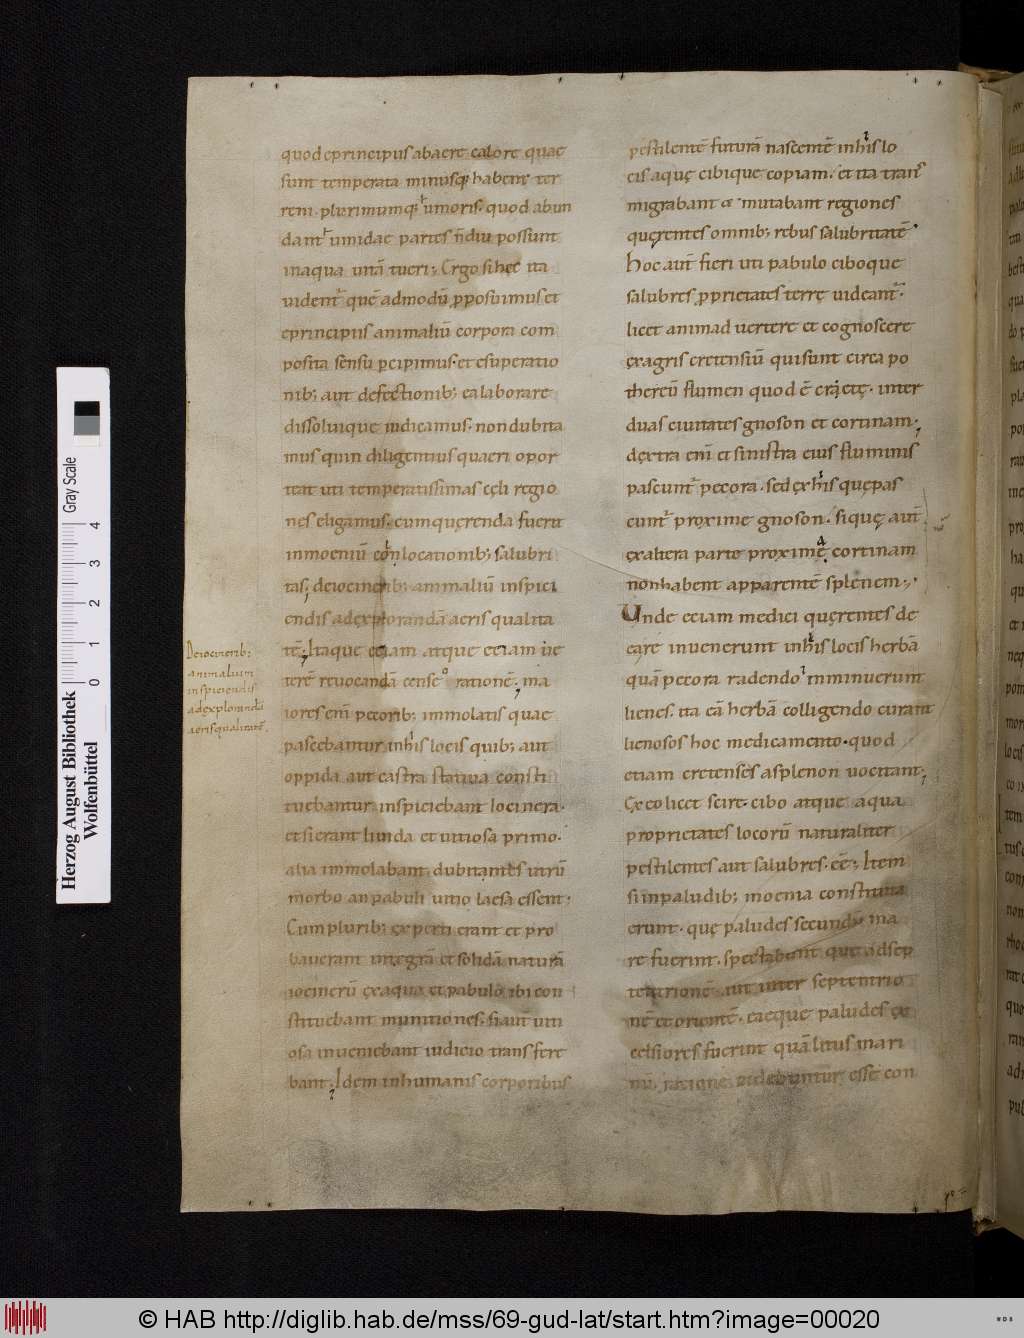 quod eprincipiis abaere calore quae
sunt temperata minusq; habent ter
reni. plurimumq; umoris. quod abun
dant umidae partes ñ diu possunt
inaqua uitā tueri; Ergo si hęc ita
uident quē admodū p̱posuimus et
eprincipiis animaliū corpora com
posita sensu pcipimus. et esuperatio
nib; aut defectionib; ea laborare
dissoluique iudicamus. non dubita
mus quin diligentius quaeri opor
teat uti temperatissimas cęli regio
nes eligamus. cum quęrenda fuerit
inmoeniū conlocationib; salubri
tas; deiocinerib; animaliū inspici
endis adexplorandā aeris qualita
tē; Itaque eciam atque eciam ue
terē reuocandā censeo rationē; ma
iores enī pecorib; immolatis quae
pascebantur inhis locis quib; aut
oppida aut castra statiua consti
tuebantur inspiciebant iocinera.
et si erant liuida et uitiosa primo.
alia immolabant. dubitantes utrū
morbo an pabuli uitio laesa essent;
Cum plurib; ęxperti erant et pro
bauerant integrā et solidā naturā
iocinerū ęx aqua et pabulo ibi con
stituebant munitiones. si aut uiti
osa inueniebant iudicio trans fere
bant; Idem inhumanis corporibus
Deiocinerib;
animalium
inspiciendis
adexplorandā
aeris qualitatē.
pestilentē futurā nascentē inhis lo
cis aquę cibique copiam. et ita trans
migrabant & mutabant regiones
quęrentes omnib; rebus salubritatē.
Hoc aut fieri uti pabulo ciboque
salubres p̱prietates terrę uideant.
licet animad uertere et cognoscere
ęxagris cretensiū qui sunt circa po
thereū flumen quod ē cretę. inter
duas ciuitates gnoson et cortinam;
dęxtra enī et sinistra eius fluminis
pascunt pecora. sed ęxhis quę pas
cunt proxime gnoson. si quę aut
ęx altera parte proxime cortinam
non habent apparentē splenem;
Unde eciam medici quęrentes de
eare inuenerunt inhis locis herbā
quā pecora rodendo imminuerunt
lienes. ita eā herbā colligendo curant
lienosos hoc medicamento. quod
etiam cretenses asplenon uocitant;
Ęx eo licet scire. cibo atque aqua
proprietates locorū naturaliter
pestilentes aut salubres. eē; Item
si inpaludib; moenia constituta
erunt. quę paludes secundū ma
re fuerint. spectabunt que ad sep
tentrionē. aut inter septentrio
nē et orientē. eaeque paludes ęx
celsiores fuerint quā litus mari
nū. ratione uidebuntur esse con
Herzog August Bibliothek
Wolfenbüttel
Gray Scale
0 1 2 3 4
© HAB http://diglib.hab.de/mss/69-gud-lat/start.htm?image=00020